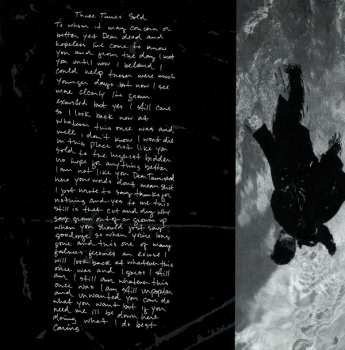 Three Times Sold
To whom it may concern or
better yet Dear dead and
hopeless Ive come to know
you and from the day I met
you until now I believed I
could help those were much
younger days but now I see
more clearly Ive grown
exhausted but yes I still care
so I look back now at
whatever this once was and
well i don't know I won't die
in this place not like you
sold to the highest bidder
no hope for anything better
I am not like you Dear Tarnished
here your words dont mean shit
I just wrote to say thanks for
nothing and yes to me this
still is that cut and dry why
say grown out of or grown up
when you should just say
goodbye so when youre long
gone and this one of many
failures becomes an excuse I
will look back at whatever this
once was and I guess I still
am I still am whatever this
once was I am still unspoken
and unwanted you can do
what you want but if you
need me ill be down here
doing what I do best
Caring